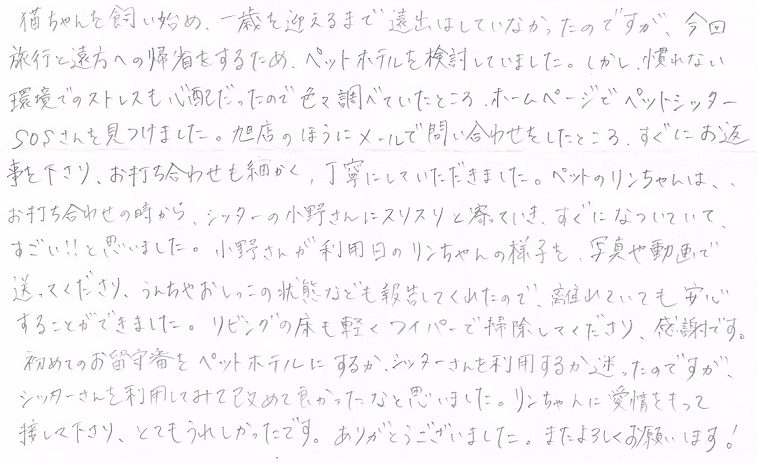 猫ちゃんを飼い始め、一歳を迎えるまで遠出はしていなかったのですが、今回
旅行と遠方への帰省をするため、ペットホテルを検討していました。しかし、慣れない
環境でのストレスも心配だったので色々調べていたところ、ホームページでペットシッター
SOSさんを見つけました。旭店のほうにメールで問い合わせをしたところ、すぐにお返
事を下さり、お打ち合わせも細かく、丁寧にしていただきました。ペットのリンちゃんは、、
お打ち合わせの時から、シッターの小野さんにスリスリと寄っていき、すぐになついていて、
すごい!!と思いました。小野さんが利用日のリンちゃんの様子を、写真や動画で
送ってくださり、うんちやおしっこの状態なども報告してくれたので、離れていても安心
することができました。リビングの床も軽くワイパーで掃除してくださり、感謝です。
初めてのお留守番をペットホテルにするか、シッターさんを利用するか迷ったのですが、
シッターさんを利用してみて改めて良かったなと思いました。リンちゃんに愛情をもって
接して下さり、とてもうれしかったです。ありがとうございました。またよろしくお願いします!